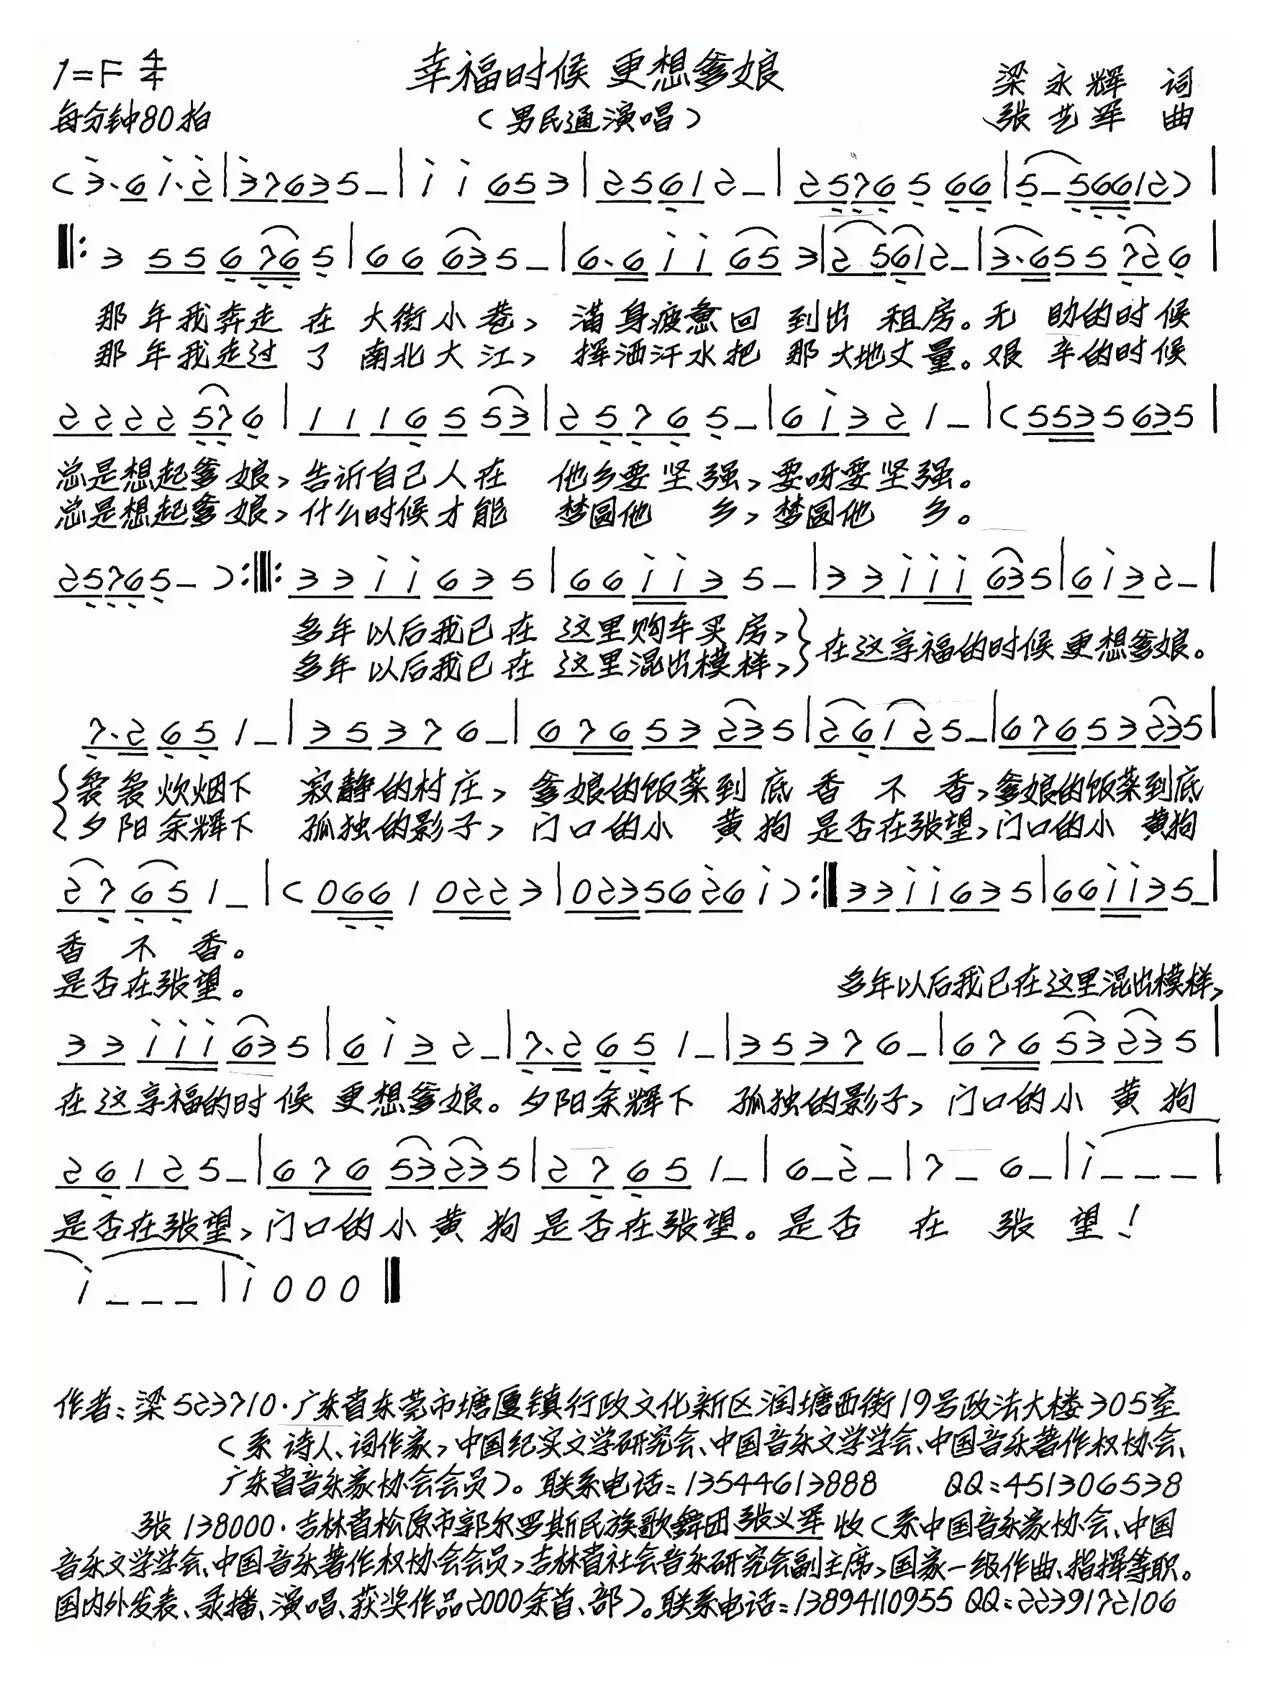 1=F 4/4 幸福时候 更想爹娘 梁永辉 词
每分钟80拍 (男民通演唱) 张艺军 曲
(3·6 1·2|37635-|1 1 653|25612-|2576 5 66|5-56612)|
‖:3 55 6765|66 635-|6·6 11 653|25612-|3·655 726|
那年我奔走 在 大街小巷, 满身疲惫回 到出 租房。无 助的时候
那年我走过 了 南北大江, 挥洒汗水把 那大地丈量。艰 辛的时候
2222 576|1116 5 53|25765-|61321-|(5535 635|
总是想起爹 娘,告诉自己人在 他乡要坚强,要呀要坚强。
总是想起爹 娘,什么时候才能 梦圆他 乡,梦圆他 乡。
25765-):‖:33 11 63 5|66 113 5-|33 111 635|6132-|
多年以后我已在 这里购车买 房,}在这享福的时候更想爹娘。
多年以后我已在 这里混出模样,
7·2651-|35376-|676 53 235|26125-|67653235|
{袅袅炊烟下 寂静的村庄, 爹娘的饭菜到 底香 不 香,爹娘的饭菜到底
夕阳余辉下 孤独的影子, 门口的小 黄狗 是否在张望,门口的小 黄狗
27651-|(0661 0223|02356261):‖3311635|661135-|
香 不 香。
是否在张望。 多年以后我已在这里混出模样,
33 111 635|6132-|7·2651-|35376-|676 53 235|
在这享福的时候 更想爹娘。夕阳余辉下 孤独的影子, 门口的小 黄 狗
26125-|676 53235|27651-|6-2-|7-6-|1---|
是否在张望,门口的小黄 狗 是否在张望。是否 在 张 望!
1---|1000‖
作者:梁523710·广东省东莞市塘厦镇行政文化新区润塘西街19号政法大楼305室
(系 诗人、词作家,中国纪实文学研究会、中国音乐文学学会、中国音乐著作权协会、
广东省音乐家协会会员)。联系电话:13544613888 QQ:451306538
张138000·吉林省松原市郭尔罗斯民族歌舞团张义军收(系中国音乐家协会、中国
音乐文学学会、中国音乐著作权协会会员,吉林省社会音乐研究会副主席,国家一级作曲、指挥等职。
国内外发表、录播、演唱、获奖作品2000余首、部)。联系电话:13894110955 QQ:2239172106